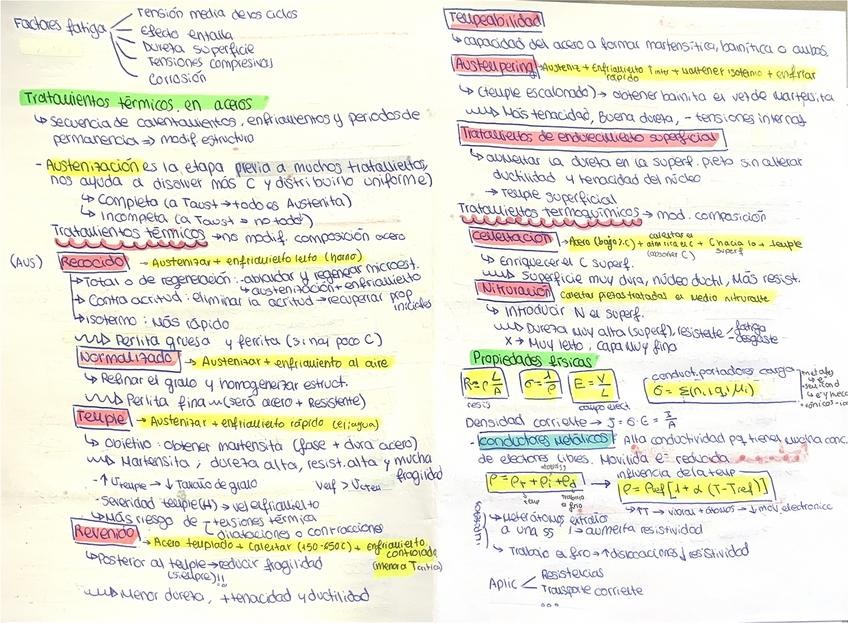 Factores fatiga
Tensión media de los ciclos
Efecto entalla
Dureza superficie
Tensiones compresivas
Corrosión
Tratamientos térmicos en aceros
↳ secuencia de calentamientos, enfriamientos y periodos de
permanencia → modif estructura
- Austenización es la etapa previa a muchos tratamientos,
nos ayuda a disolver más C y distribuirlo uniforme)
↳ Completa (a Taust → todo es Austenita)
↳ Incompleta (a Taust → no todo)
Tratamientos térmicos → no modif. composición acero
(AUS) Recocido - Austenizar + enfriamiento lento (horno)
Total o de regeneración: ablandar y regenerar microest.
↳ austenización + enfriamiento
Contra acritud: eliminar la acritud → recuperar prop
iniciales
isotermo: Más rápido
Perlita gruesa y ferrita (si hay poco C)
Normalizado → Austenizar + enfriamiento al aire
↳ Refinar el grano y homogeneizar estruct.
Perlita fina (será acero + Resistente)
Temple → Austenizar + enfriamiento rápido (ej: agua)
↳ Objetivo: obtener martensita (fase + dura acero)
Martensita: dureza alta, resist. alta y mucha
fragilidad
- ↑ Utemple → ↓ Tamaño de grano Venf > Vcrítica
- Severidad temple (H) → vel enfriamiento
↳ Más riesgo de tensiones térmica
dilataciones o contracciones
Revenido → Acero templado + Calentar (150-650C) + enfriamiento
controlado
(menor a Tcrítica)
↳ Posterior al temple → reducir fragilidad
(siempre)!!
Menor dureza, + tenacidad y ductilidad
Templabilidad
↳ capacidad del acero a formar martensítica, bainítica o ambos.
Austempering → Austeniz + Enfriamiento rápido T inter + mantener isotermo + enfriar
↳ (temple escalonado) → obtener bainita en vez de Martensita
Más tenacidad, Buena dureza, - tensiones internas
Tratamientos de endurecimiento superficial
↳ aumentar la dureza en la superf. pieza sin alterar
ductilidad y tenacidad del núcleo
→ Temple superficial
Tratamientos termoquímicos → mod. composición
Cementación → Acero (bajo % C) + calentar en atm rica en C + C hacia la superf + temple
(absorver C)
↳ Enriquecer en C superf.
Superficie muy dura, núcleo ductil, Más resist.
Nitruración Calentar piezas tratadas en medio nitrurante
↳ Introducir N en superf.
Dureza muy alta (superf), resistente fatiga
desgaste
X → Muy lento, capa muy fina
Propiedades físicas
R = ρ L/A
resis
σ = 1/ρ
E = V/L
campo elect
conduct. portadores carga
σ = Σ(n, i q, μi)
Densidad corriente → J = σ·E = I/A
- Conductores metálicos: Alta conductividad pq tienen mucha conc.
de electrones libres. Movilidad e- reducida
ρ = ρT + ρi + ρd
temp
trabajo
en frío
influencia de la temp
ρ = ρref [1 + α (T - Tref)]
↳ ↑T → vibran + átomos → ↓ mov electrones
↳ Heteroátomos extraño
a una ss → aumenta resistividad
↳ Trabajo en frío → ↑ dislocaciones ↓ resistividad
Aplic Resistencias
Transporte corriente
...